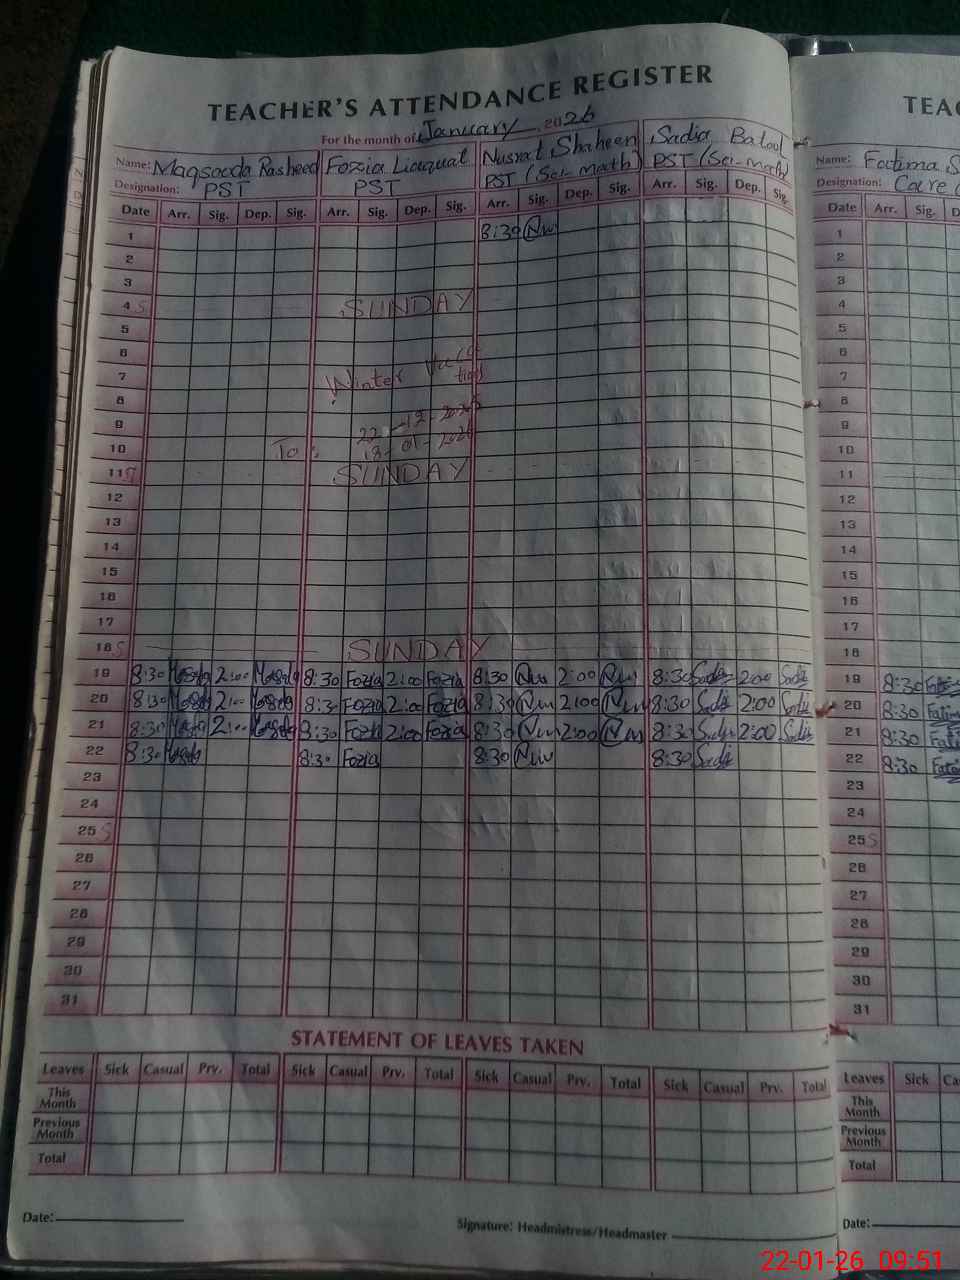 TEACHER'S ATTENDANCE REGISTER
For the month of January 2026
Name: Maqsooda Rasheed Fozia Liaquat Nusrat Shaheen Sadia Batool
Designation: PST PST PST (Sci-math) PST (Sci-math)
Date Arr. Sig. Dep. Sig. Arr. Sig. Dep. Sig. Arr. Sig. Dep. Sig. Arr. Sig. Dep. Sig.
1 8:30
2
3
4 S SUNDAY
5
6
7 Winter Vaca
tions
8
9 22-12-2025
10 To: 18-01-2026
11 S SUNDAY
12
13
14
15
16
17
18 S SUNDAY
19 8:30 2:00 8:30 Fozia 2:00 Fozia 8:30 2:00 8:30 Sadia 2:00 Sadia
20 8:30 2:00 8:30 Fozia 2:00 Fozia 8:30 2:00 8:30 Sadia 2:00 Sadia
21 8:30 2:00 8:30 Fozia 2:00 Fozia 8:30 2:00 8:30 Sadia 2:00 Sadia
22 8:30 8:30 Fozia 8:30 8:30 Sadia
23
24
25 S
26
27
28
29
30
31
STATEMENT OF LEAVES TAKEN
Leaves Sick Casual Prv. Total Sick Casual Prv. Total Sick Casual Prv. Total Sick Casual Prv. Total
This
Month
Previous
Month
Total
Date:
Signature: Headmistress/Headmaster
TEAC
Name: Fatima S
Designation:
Date Arr. Sig. D
1
2
3
4
5
6
7
8
9
10
11
12
13
14
15
16
17
18
19 8:30
20 8:30
21 8:30
22 8:30
23
24
25 S
26
27
28
29
30
31
Leaves Sick Ca
This
Month
Previous
Month
Total
Date:
22-01-26 09:51